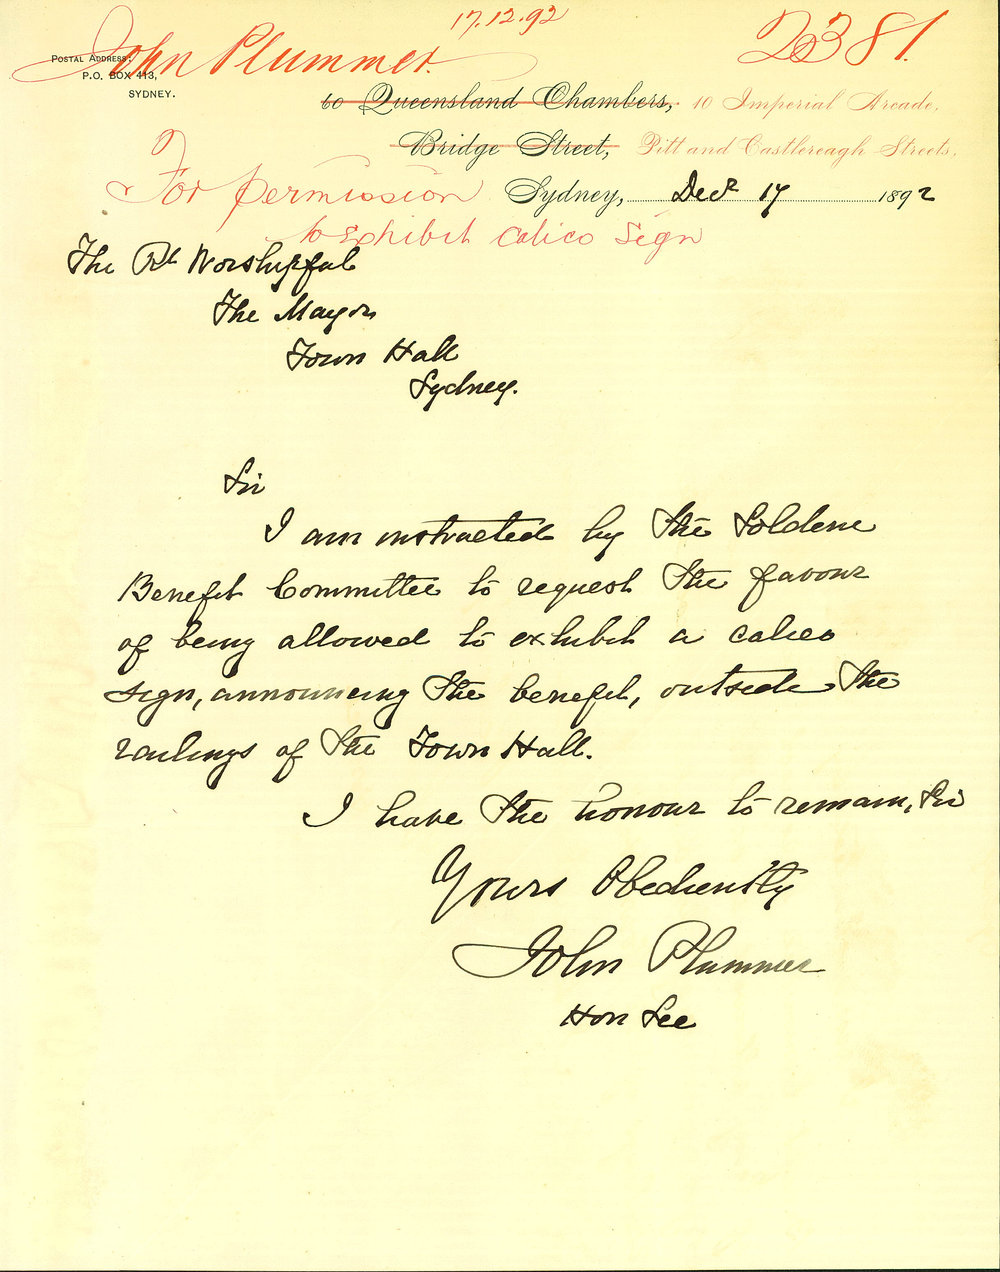 17.12.92
2381.
John Plummer.
POSTAL ADDRESS:
P.O. BOX 413,
SYDNEY.
60 Queensland Chambers, 10 Imperial Arcade,
Bridge Street, Pitt and Castlereagh Streets.
For permission
Sydney, Decr 17 1892
to Exhibit Calico Sign
The Rt Worshipful
The Mayor
Town Hall
Sydney.
Sir
I am instructed by the Soldene
Benefit Committee to request the favour
of being allowed to exhibit a calico
sign, announcing the benefit, outside the
railings of the Town Hall.
I have the honour to remain, Sir
Yours Obediently
John Plummer
Hon Sec